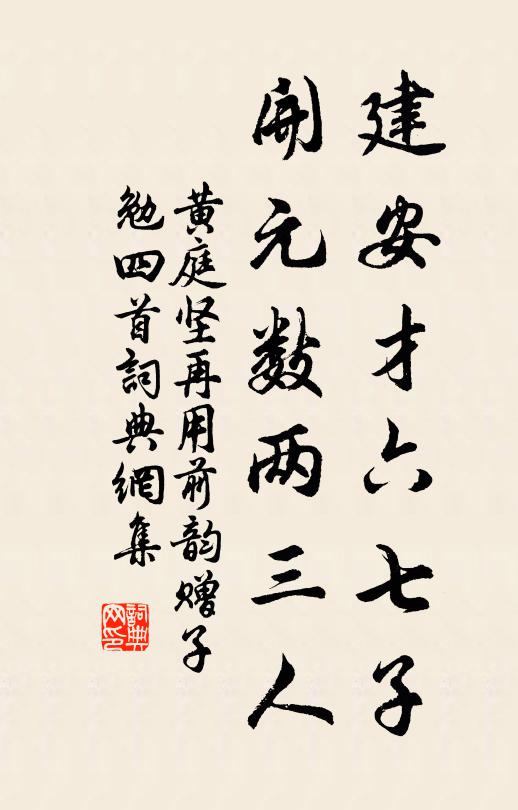 建安才六七子
開元数两三人
黄庭坚再用前韵赠子
勉四首詞典網集
詞典網印